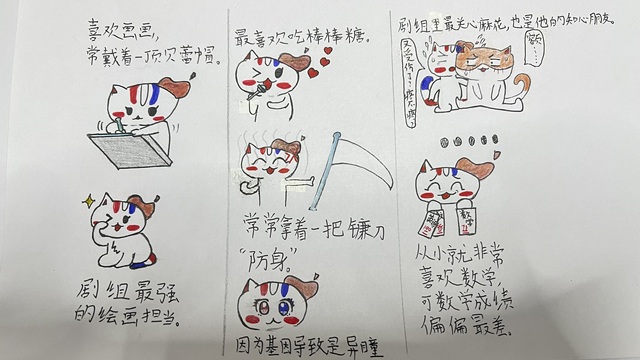 喜欢画画,
常戴着一顶贝蕾帽。
剧组最强
的绘画担当。
最喜欢吃棒棒糖。
常常拿着一把镰刀
“防身。”
因为基因导致是异瞳
剧组里最关心麻花,也是他的知心朋友。
又受伤了?疼不疼?
额……
数学
从小就非常
喜欢数学,
可数学成绩
偏偏最差。